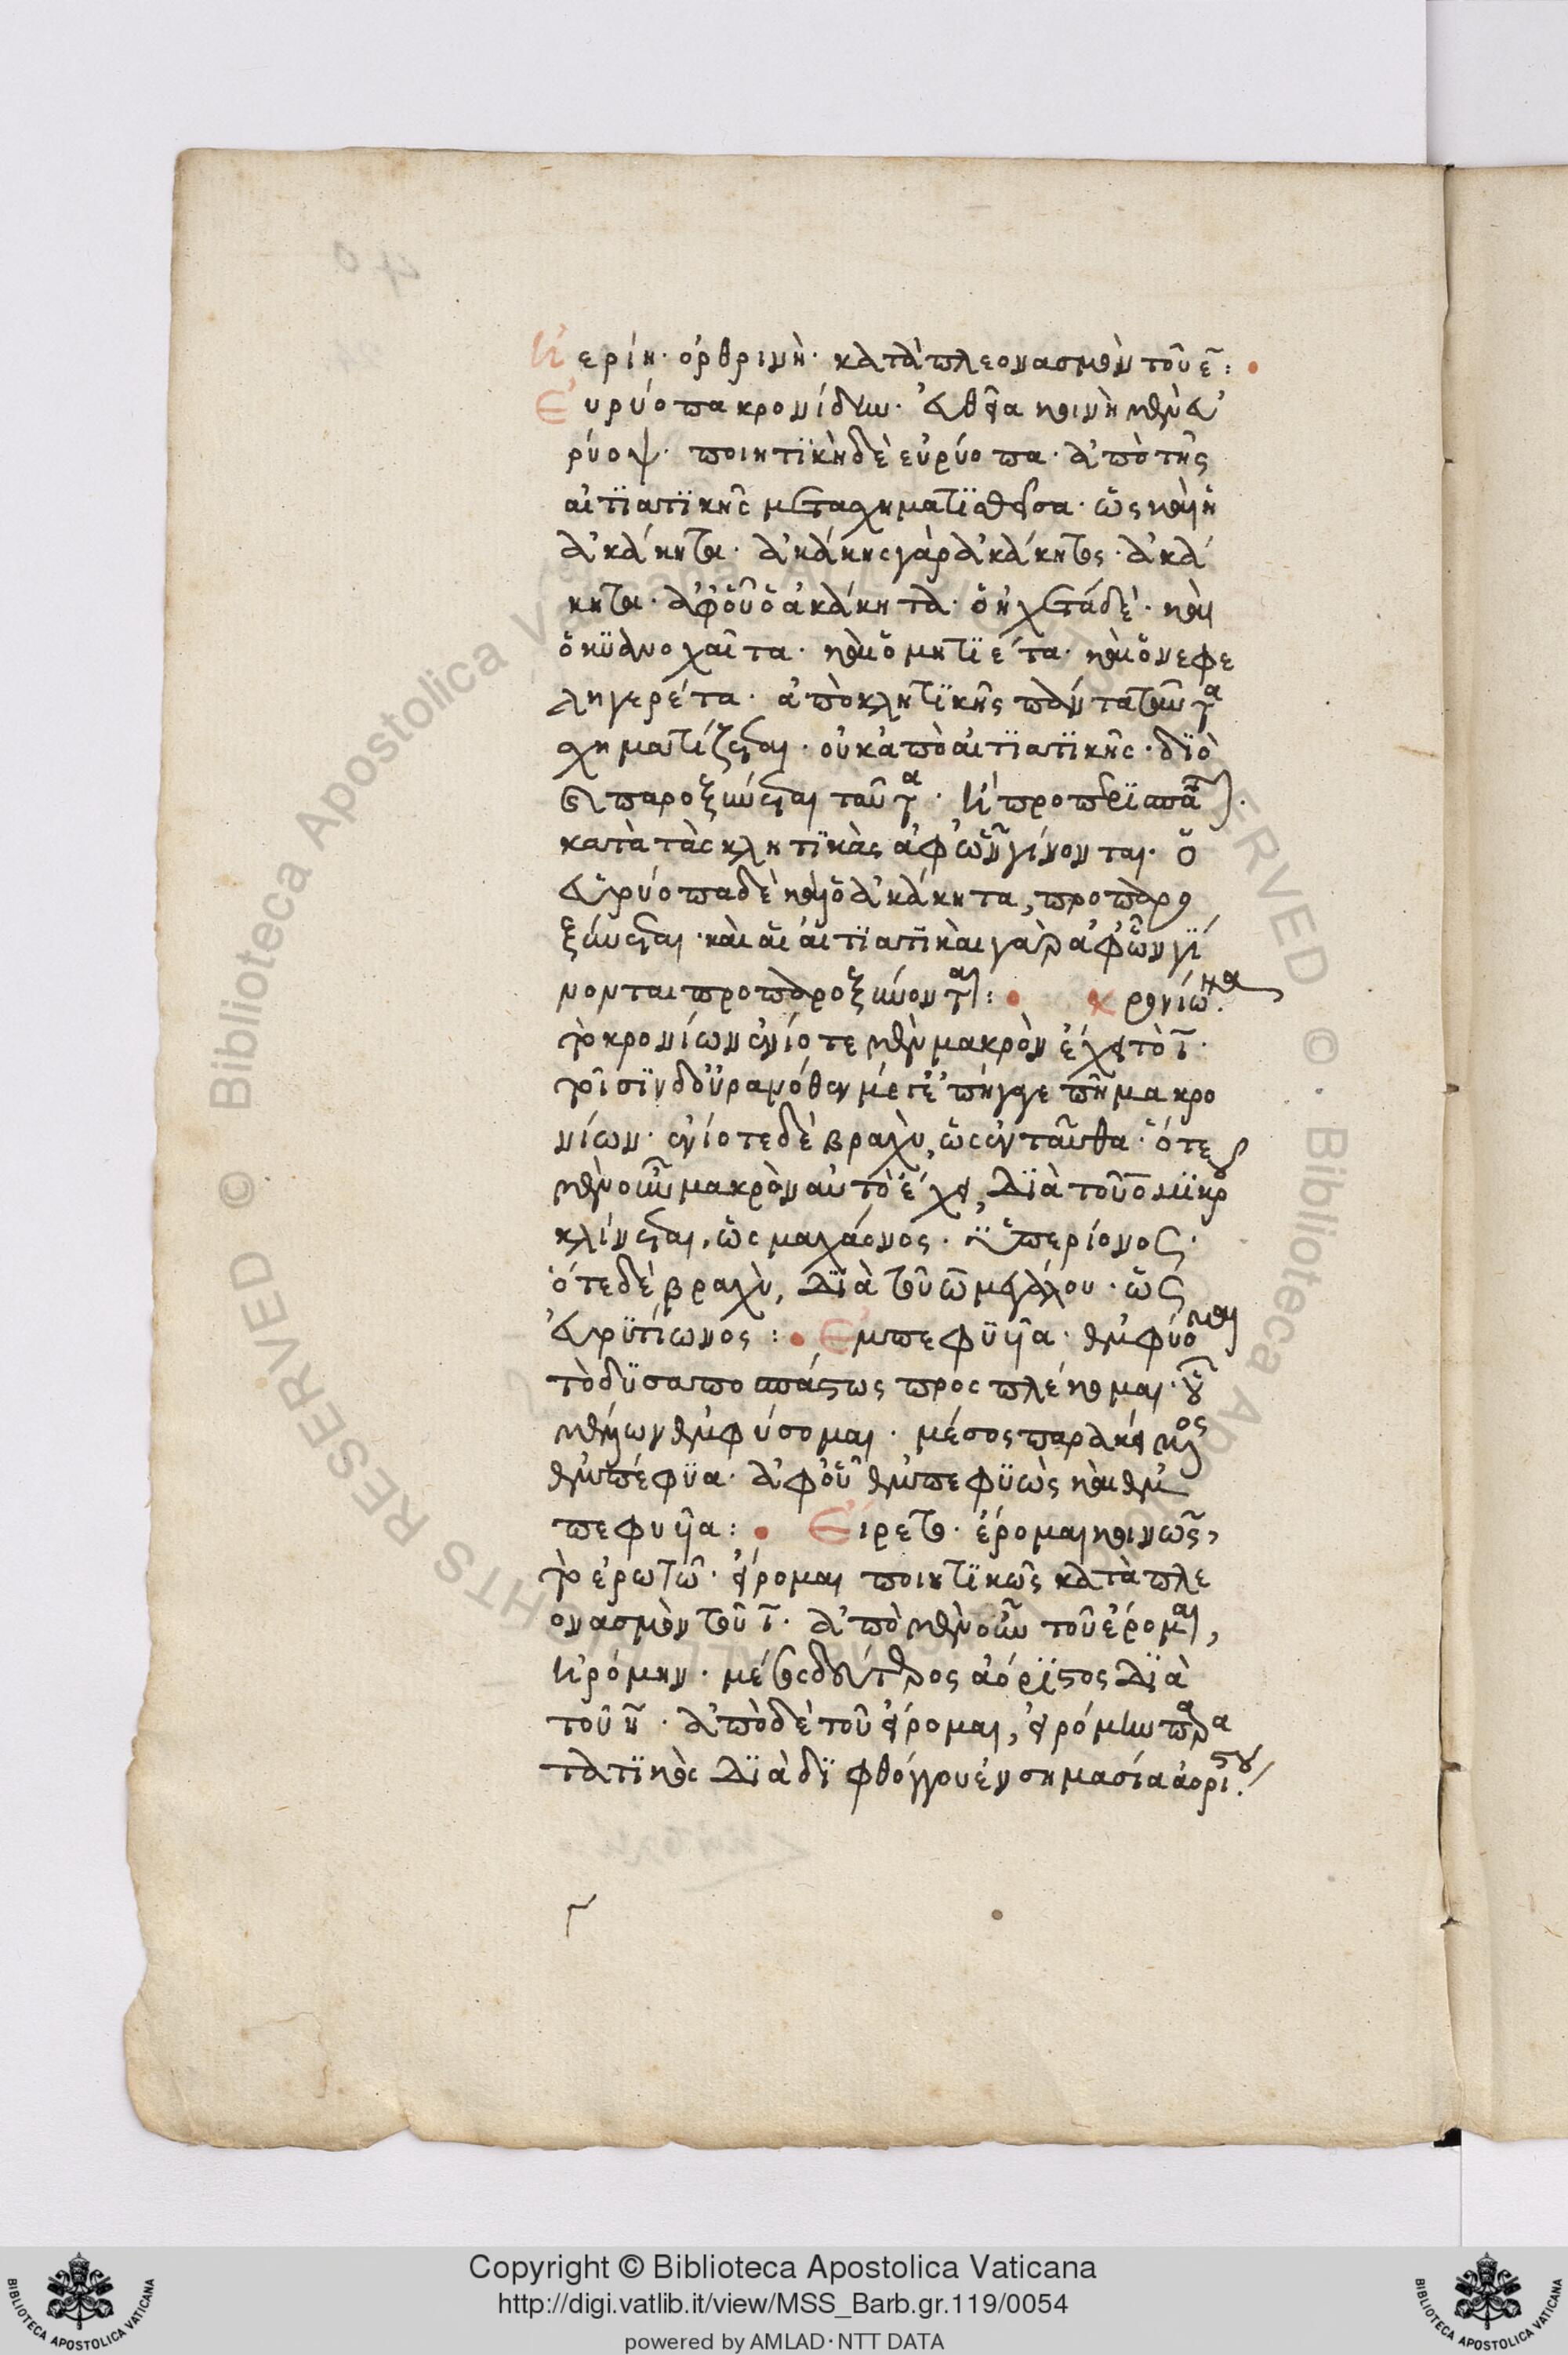 ἠερίη· ὀρθρινὴ· κατὰ πλεονασμὸν τοῦ ε̄:
Εὐρύοπα κρονίδην· εὐθεῖα κοινὴ μὲν εὐ
ρύοψ· ποιητϊκὴ δὲ εὐρύοπα· ἀπὸ τῆς
αἰτϊατϊκῆς μετασχηματϊσθεῖσα· ὡς καὶ ἡ
ἀκάκητα· ἀκάκης γὰρ ἀκάκητος· ἀκά
κητα· ἀφ' οὗ ὁ ἀκάκητα· ὁ ἠχετὰ δὲ· καὶ
ὁ κϋανοχαῖτα· καὶ ὁ μητϊέτα· καὶ ὁ νεφε
ληγερέτα· ἀπὸ κλητϊκῆς πάντα ταῦτα
σχηματίζεται· οὐκ ἀπὸ αἰτϊατϊκῆς· δϊὸ
καὶ παροξύνεται ταῦτα· ἢ προπερϊσπᾶται·
κατὰ τὰς κλητϊκὰς ἀφ' ὧν γίνονται· ὁ
εὐρύοπα δὲ καὶ ὁ ἀκάκητα, προπαρο
ξύνεται· καὶ αἱ αἰτϊατϊκαὶ γὰρ ἀφ' ὧν γί
νονται προπαροξύνονται: κρονίωνα.
τὸ κρονίων ἐνίοτε μὲν μακρὸν ἔχει τὸ ῑ·
τοῖσϊν δ' οὐρανόθεν μέγ' ἐπήγαγε πῆμα κρο
νίων· ἐνίοτε δὲ βραχὺ, ὡς ἐνταῦθα· ὅτε
μὲν οὖν μακρὸν αὐτὸ ἔχει, δϊὰ τοῦ ο μϊκροῦ
κλίνεται, ὡς μαχάονος· ὑπερίονος·
ὅτε δὲ βραχὺ, δϊὰ τοῦ ω μεγάλου· ὡς
εὐρϋτίωνος: Ἐμπεφϋῖα· ἐμφύομαι
τὸ δϋσαποσπάστως προσπλέκομαι· οὗ
μέλλων ἐμφύσομαι· μέσος παρακείμενος
ἐμπέφϋα· ἀφ' οὗ ἐμπεφϋὼς καὶ ἐμ
πεφυῖα: Εἴρετο· ἔρομαι κοινῶς,
τὸ ἐρωτῶ· εἴρομαι ποιητϊκῶς κατὰ πλε
ονασμὸν τοῦ ῑ· ἀπὸ μὲν οὖν τοῦ ἔρομαι,
ἠρόμην· μέσος δεύτερος ἀόρϊστος δϊὰ
τοῦ η· ἀπὸ δὲ τοῦ εἴρομαι, εἰρόμην παρα
τατϊκὸς δϊὰ δϊφθόγγου ἐν σημασίᾳ ἀορίστου.
Copyright © Biblioteca Apostolica Vaticana
http://digi.vatlib.it/view/MSS_Barb.gr.119/0054
powered by AMLAD·NTT DATA